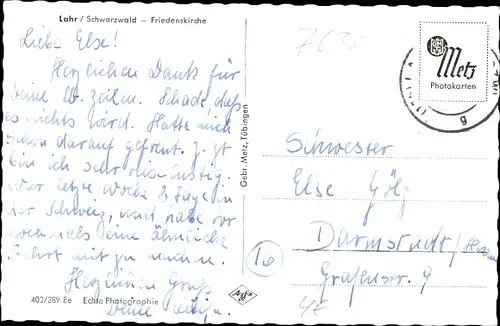 Lahr / Schwarzwald — Friedenskirche
Liebe Else!
Herzlichen Dank für
Deine lb. Zeilen. Schade, daß
es nichts wird. Hatte mich
schon darauf gefreut. Z. Zt.
bin ich sehr
War letzte Woche 3 Tage in
der Schweiz, und habe vor
nochmals eine ähnliche
Fahrt mit zu machen.
Herzlichen Gruß
Deine
400/289 Ee Echte Photographie
Gebr. Metz, Tübingen
Agfa
Metz
Photokarten
Schwester
Else
Darmstadt/Hessen
Grafenstr. 9